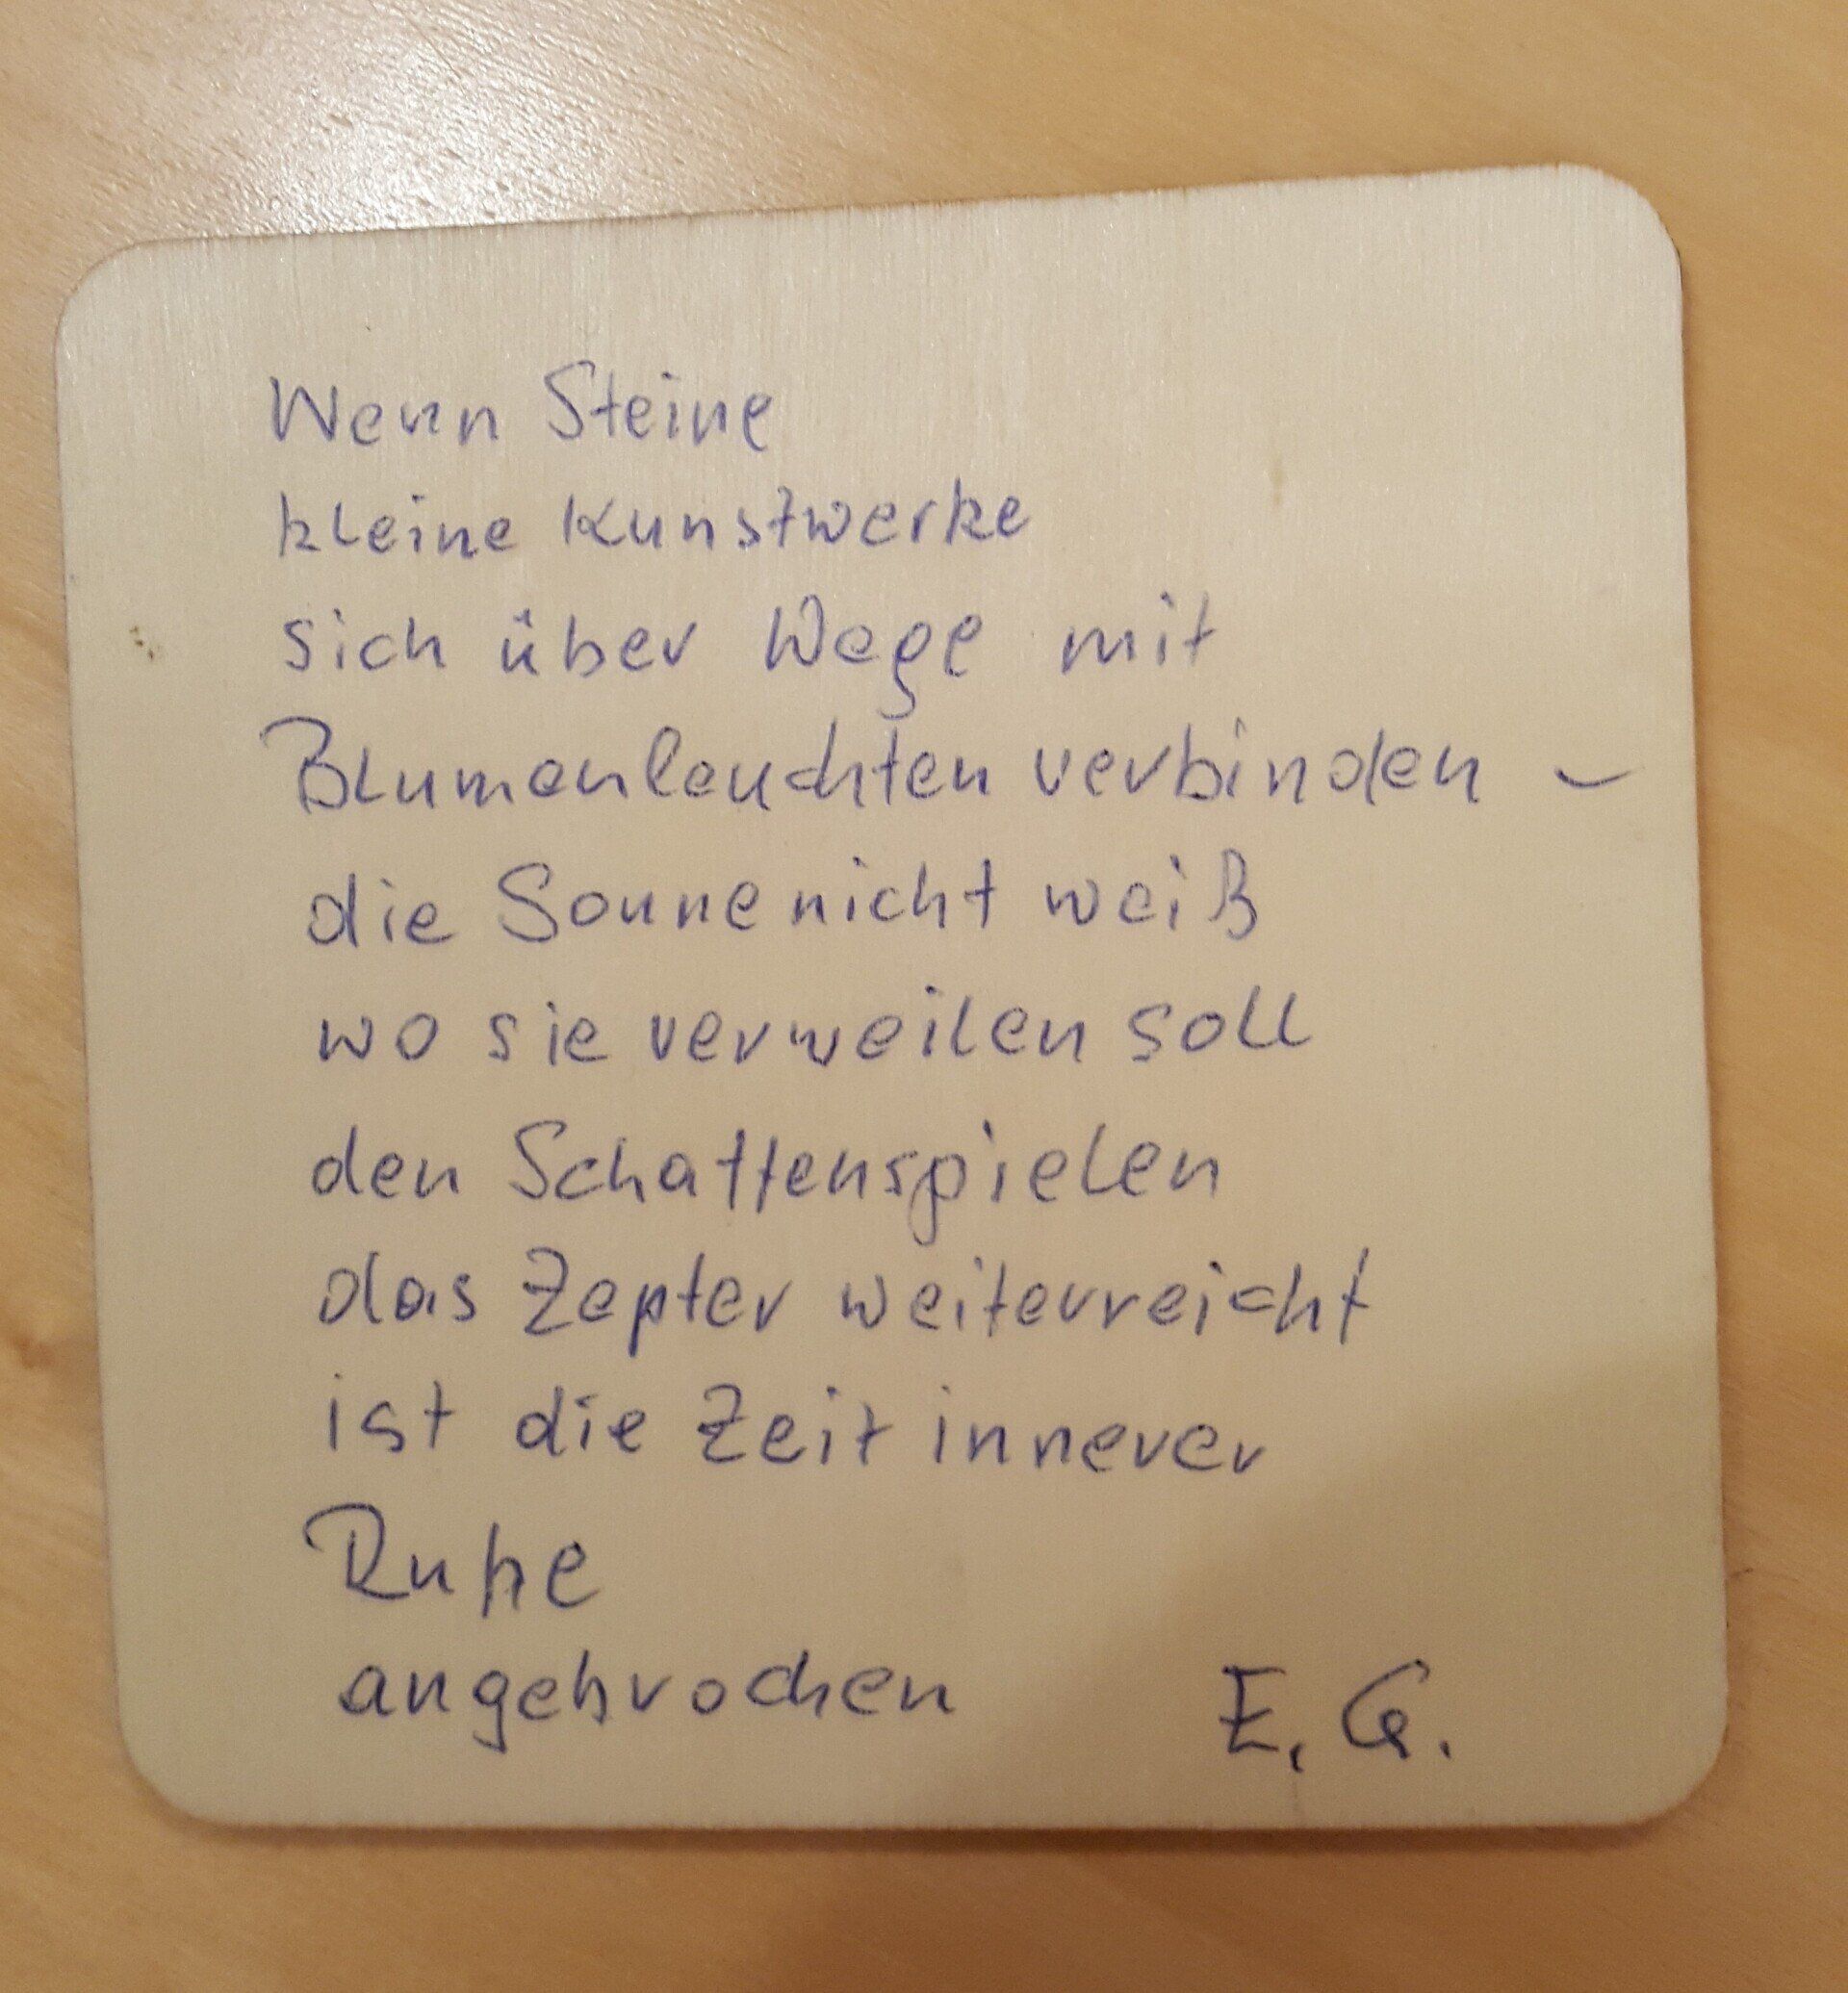 Wenn Steine
kleine Kunstwerke
sich über Wege mit
Blumenleuchten verbinden –
die Sonne nicht weiß
wo sie verweilen soll
den Schattenspielen
das Zepter weiterreicht
ist die Zeit innerer
Ruhe
angebrochen E. G.